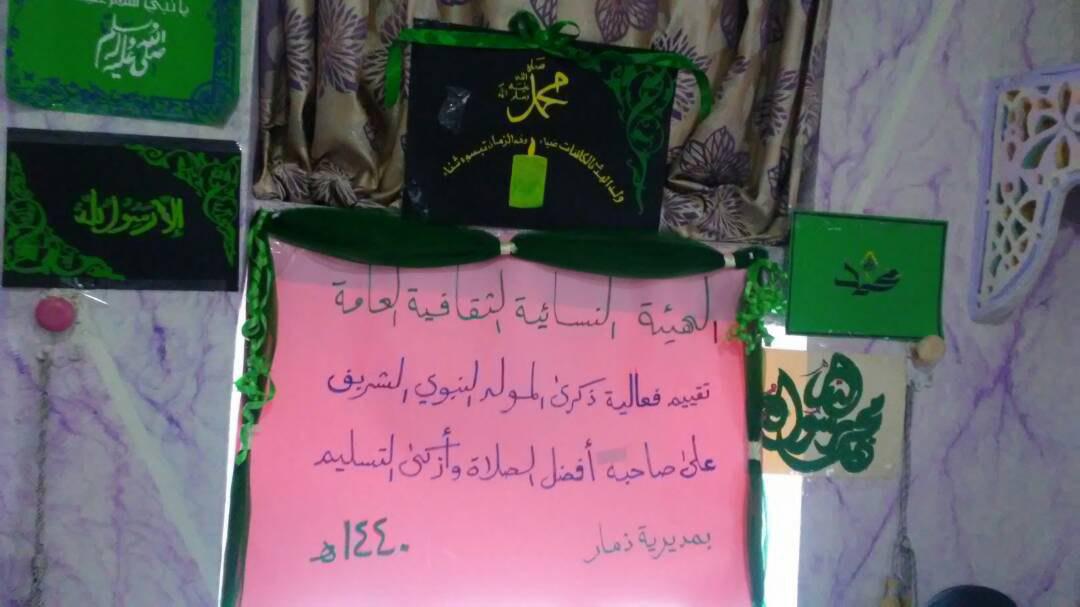 صلى الله عليه وآله وسلم
إلا رسول الله
محمد
صلى الله عليه وآله
ولد الهدى فالكائنات ضياء وفم الزمان تبسم وثناء
الهيئة النسائية الثقافية العامة
تقييم فعالية ذكرى المولد النبوي الشريف
على صاحبه أفضل الصلاة وأزكى التسليم
بمديرية ذمار
١٤٤٠هـ
محمد رسول الله